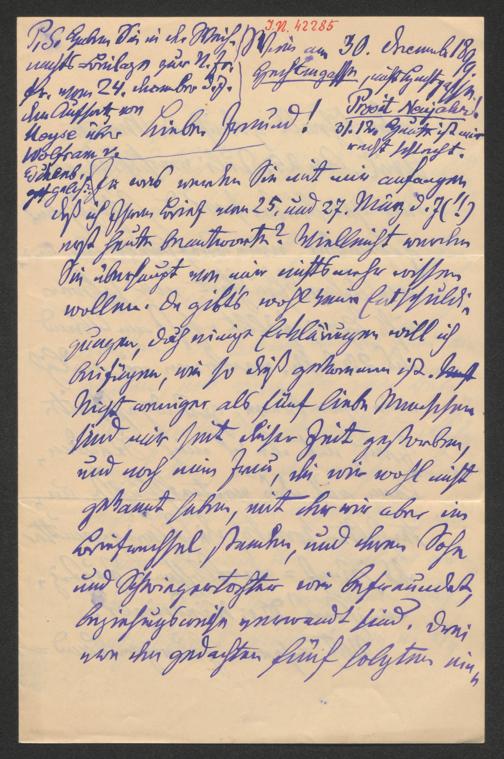 I.N. 42285
P.S. Haben Sie in der Weih-
nachts-Beilage zur N. Fr.
Pr. vom 24. Dezember d. J.
den Aufsatz von
über
Wolfram v.
Eschenb.
gelesen?
Wien am 30. December 189
Prosit Neujahr!
31.12. Heute ist mir
recht schlecht.
Lieber Freund!
Ja was werden Sie mit mir anfangen
daß ich Ihren Brief vom 25. und 27. März d. J. (!)
erst heute beantworte? Vielleicht werden
Sie überhaupt von mir nichts mehr wissen
wollen. Da gibt's wohl keine Entschuldi-
gungen, doch einige Erklärungen will ich
beifügen, wie so dieß gekommen ist.
Nicht weniger als fünf liebe Menschen
sind mir seit dieser Zeit gestorben,
und noch eine Frau, die wir wohl nicht
gekannt haben, mit der wir aber im
Briefwechsel standen, und deren Sohn
und Schwiegertochter wir befreundet,
beziehungsweise verwandt sind. Drei
von den gedachten fünf folgten ein-